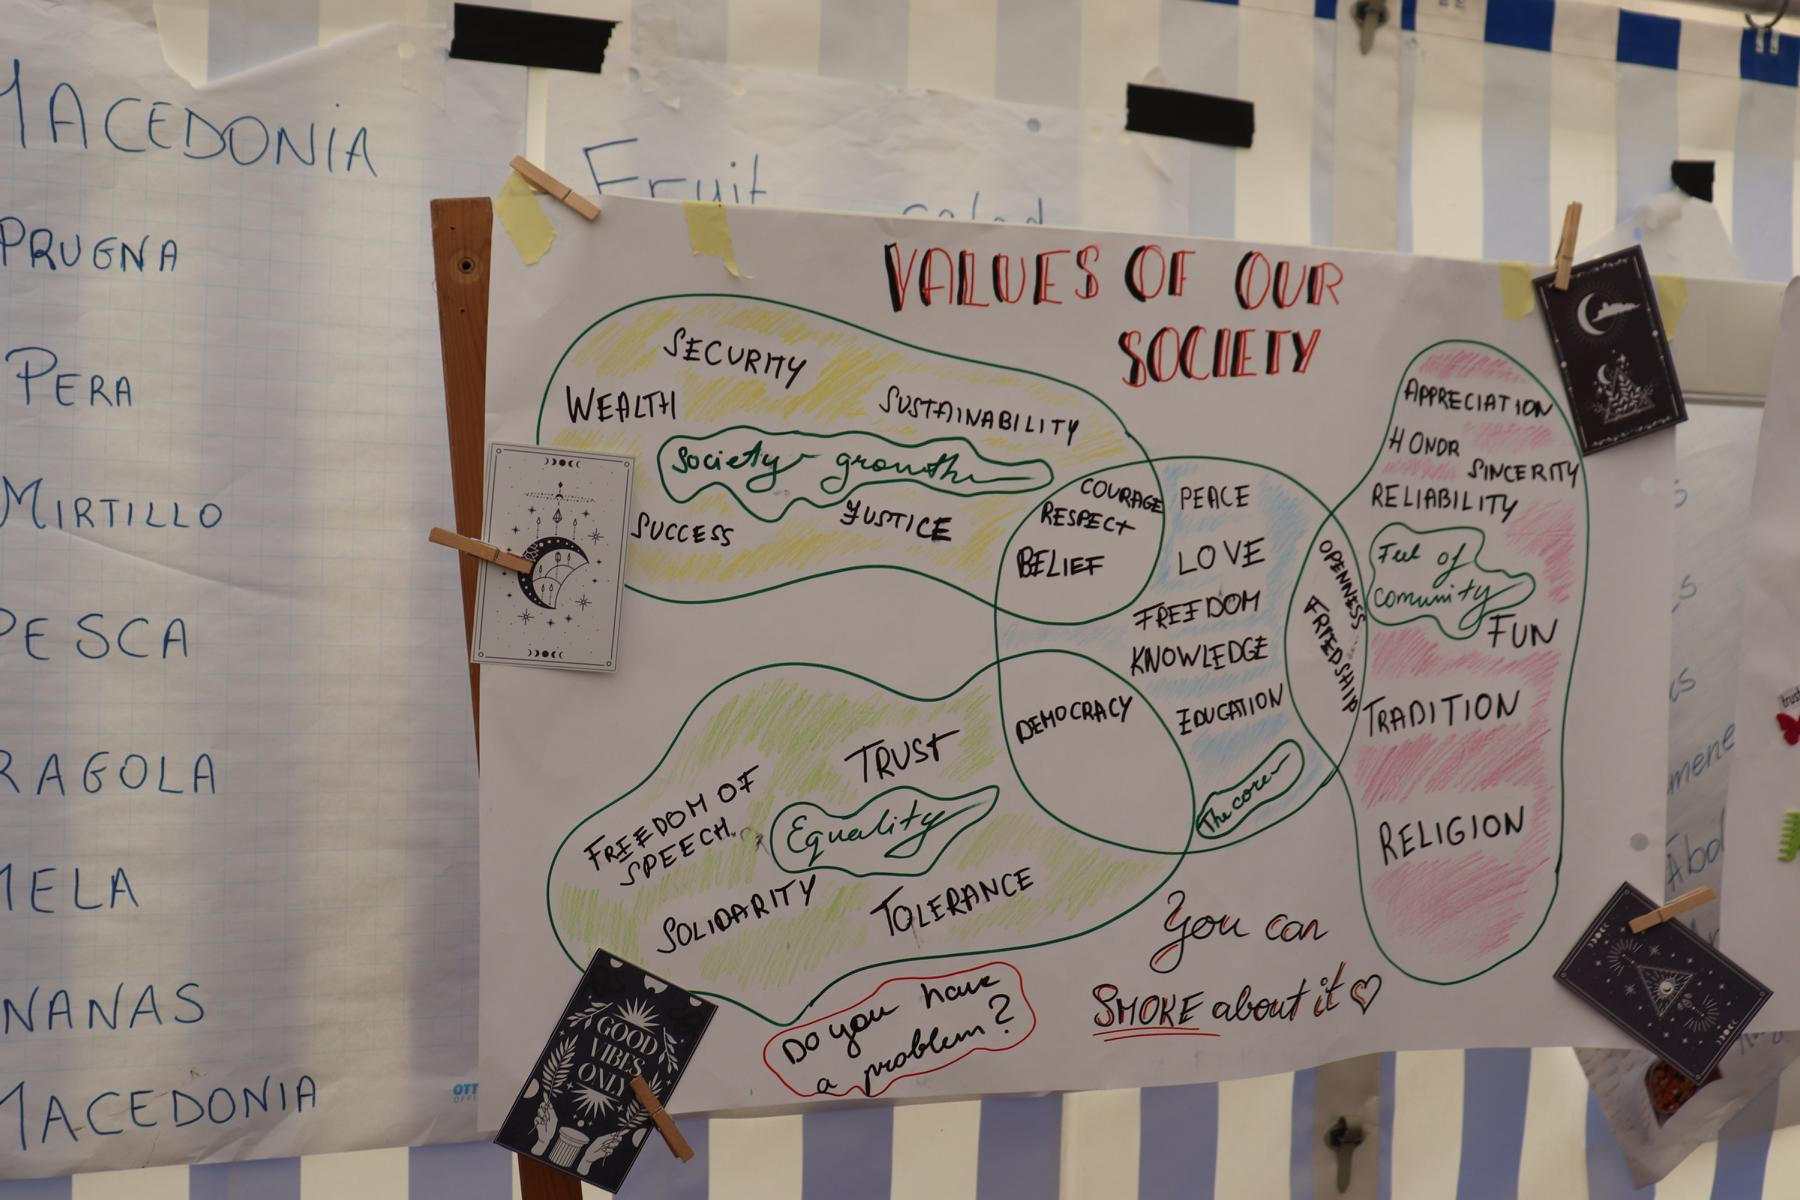 MACEDONIA
PRUGNA
PERA
MIRTILLO
PESCA
RAGOLA
MELA
NANAS
MACEDONIA
Fruit salad
VALUES OF OUR
SOCIETY
SECURITY
WEALTH
SUSTAINABILITY
Society growth
SUCCESS
JUSTICE
COURAGE
RESPECT
BELIEF
PEACE
LOVE
FREEDOM
KNOWLEDGE
EDUCATION
The core
DEMOCRACY
OPENNESS
FRIEDSHIP
APPRECIATION
HONOR
SINCERITY
RELIABILITY
Feel of
comunity
FUN
TRADITION
RELIGION
TRUST
FREEDOM OF
SPEECH
Equality
SOLIDARITY
TOLERANCE
You can
SMOKE about it
Do you have
a problem?
GOOD
VIBES
ONLY